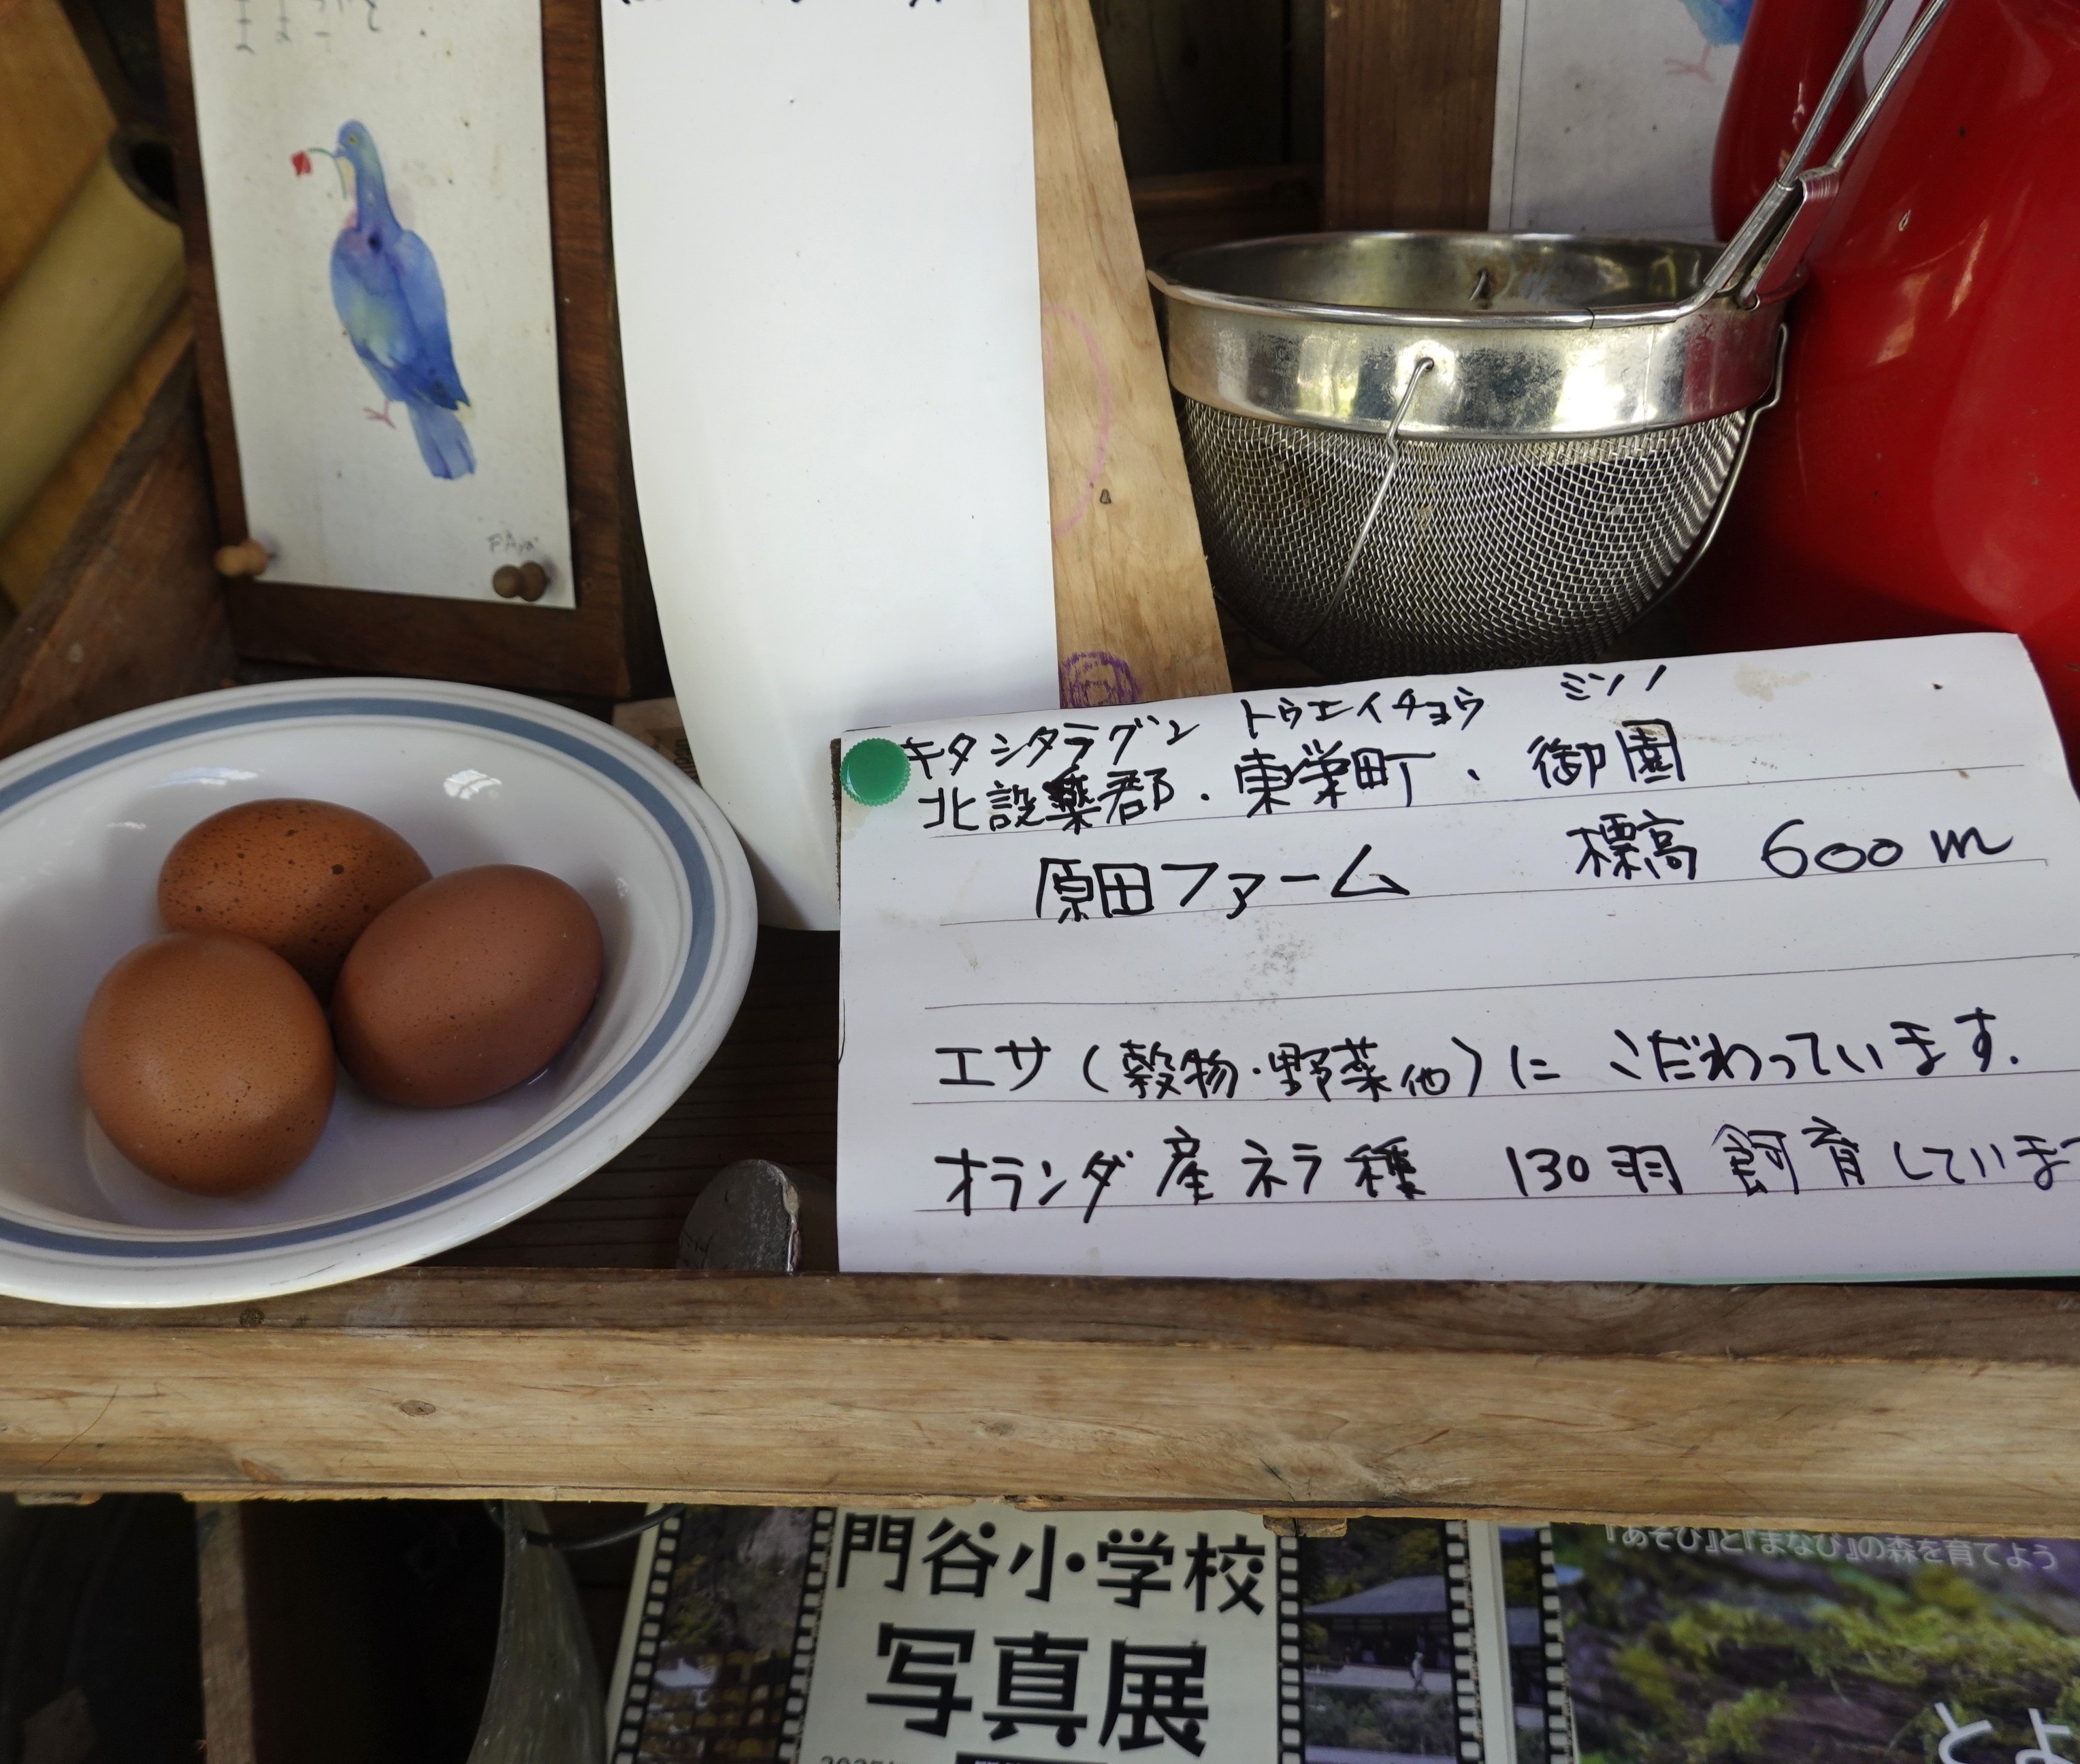 キタシタラグン トウエイチョウ ミソノ
北設楽郡・東栄町・御園
原田ファーム 標高 600m
エサ(穀物・野菜他)に こだわっています.
オランダ産ネラ種 130羽 飼育しています
門谷小学校
写真展
『あそび』と『まなび』の森を育てよう
とよ